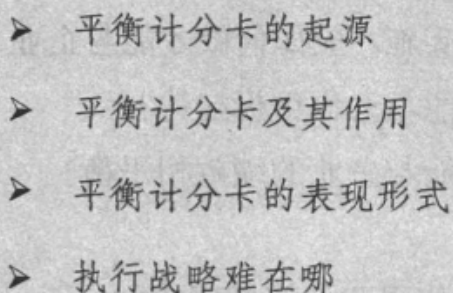 ➢ 平衡计分卡的起源
➢ 平衡计分卡及其作用
➢ 平衡计分卡的表现形式
➢ 执行战略难在哪